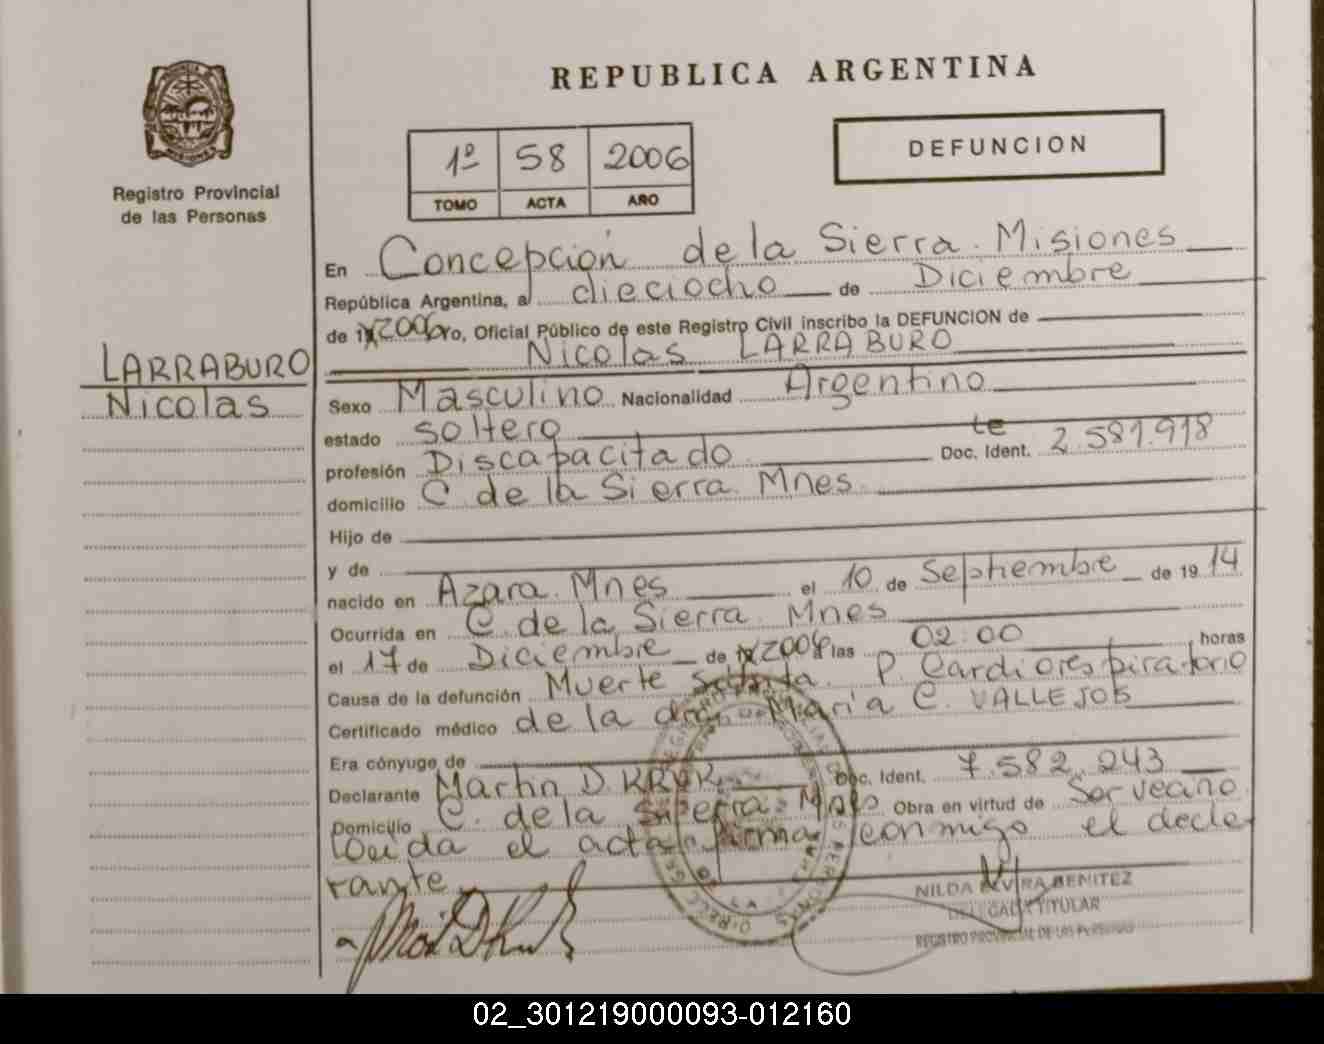 REPUBLICA ARGENTINA
Registro Provincial
de las Personas
1º 58 2006
TOMO ACTA AÑO
DEFUNCION
LARRABURO
Nicolas
En Concepción de la Sierra. Misiones
República Argentina, a dieciocho de Diciembre
de 2006 , Oficial Público de este Registro Civil inscribo la DEFUNCION de
Nicolas LARRABURO
Sexo Masculino Nacionalidad Argentino
estado soltero
profesión Discapacitado Doc. Ident. 2.581.918
domicilio C. de la Sierra. Mnes
Hijo de
y de
nacido en Azara. Mnes el 10 de Septiembre de 19 14
Ocurrida en C. de la Sierra. Mnes
el 17 de Diciembre de 2006 las 02:00 horas
Causa de la defunción Muerte Subita. P. Cardiorespiratorio
Certificado médico de la dra. Maria C. VALLEJOS
Era cónyuge de
Declarante Martin D. Doc. Ident. 7.582.243
Domicilio C. de la Sierra. Mnes Obra en virtud de Ser vecino
Leida el acta firma conmigo el decla
rante
NILDA ELVIRA BENITEZ
DELEGADA TITULAR
REGISTRO PROVINCIAL DE LAS PERSONAS
02_301219000093-012160